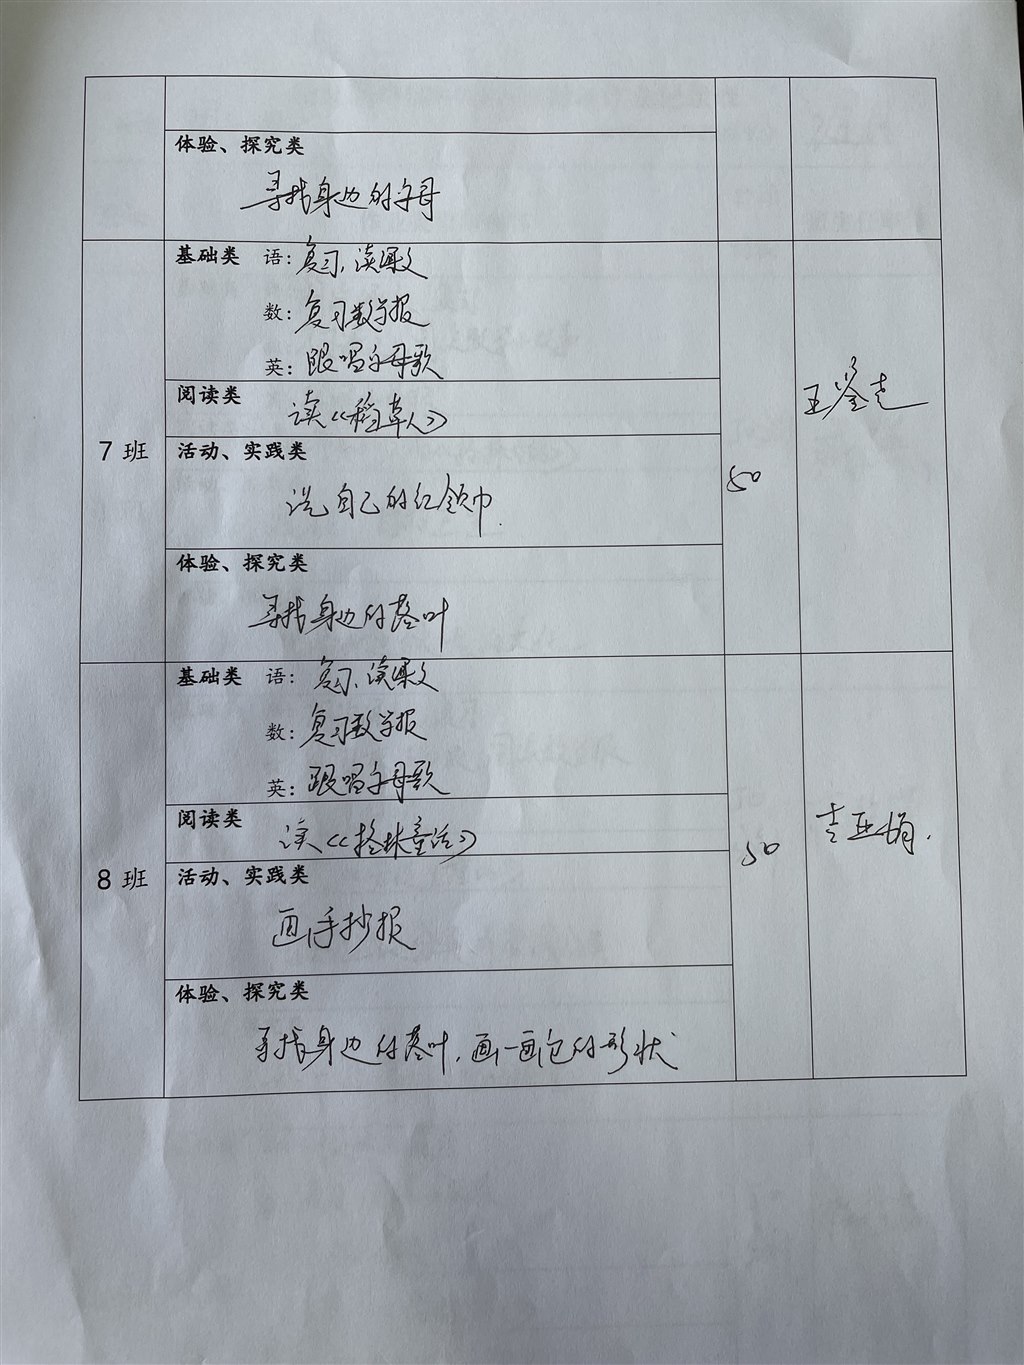 体验、探究类
寻找身边的字母
基础类 语: 复习、读课文
数: 复习数学报
英: 跟唱字母歌
阅读类
读《稻草人》
7 班
活动、实践类
洗自己的红领巾.
50
体验、探究类
寻找身边的落叶
基础类 语: 复习、读课文
数: 复习数学报
英: 跟唱字母歌
阅读类
读《格林童话》
8 班
活动、实践类
画手抄报
50
李亚娟.
体验、探究类
寻找身边的落叶,画一画它的形状